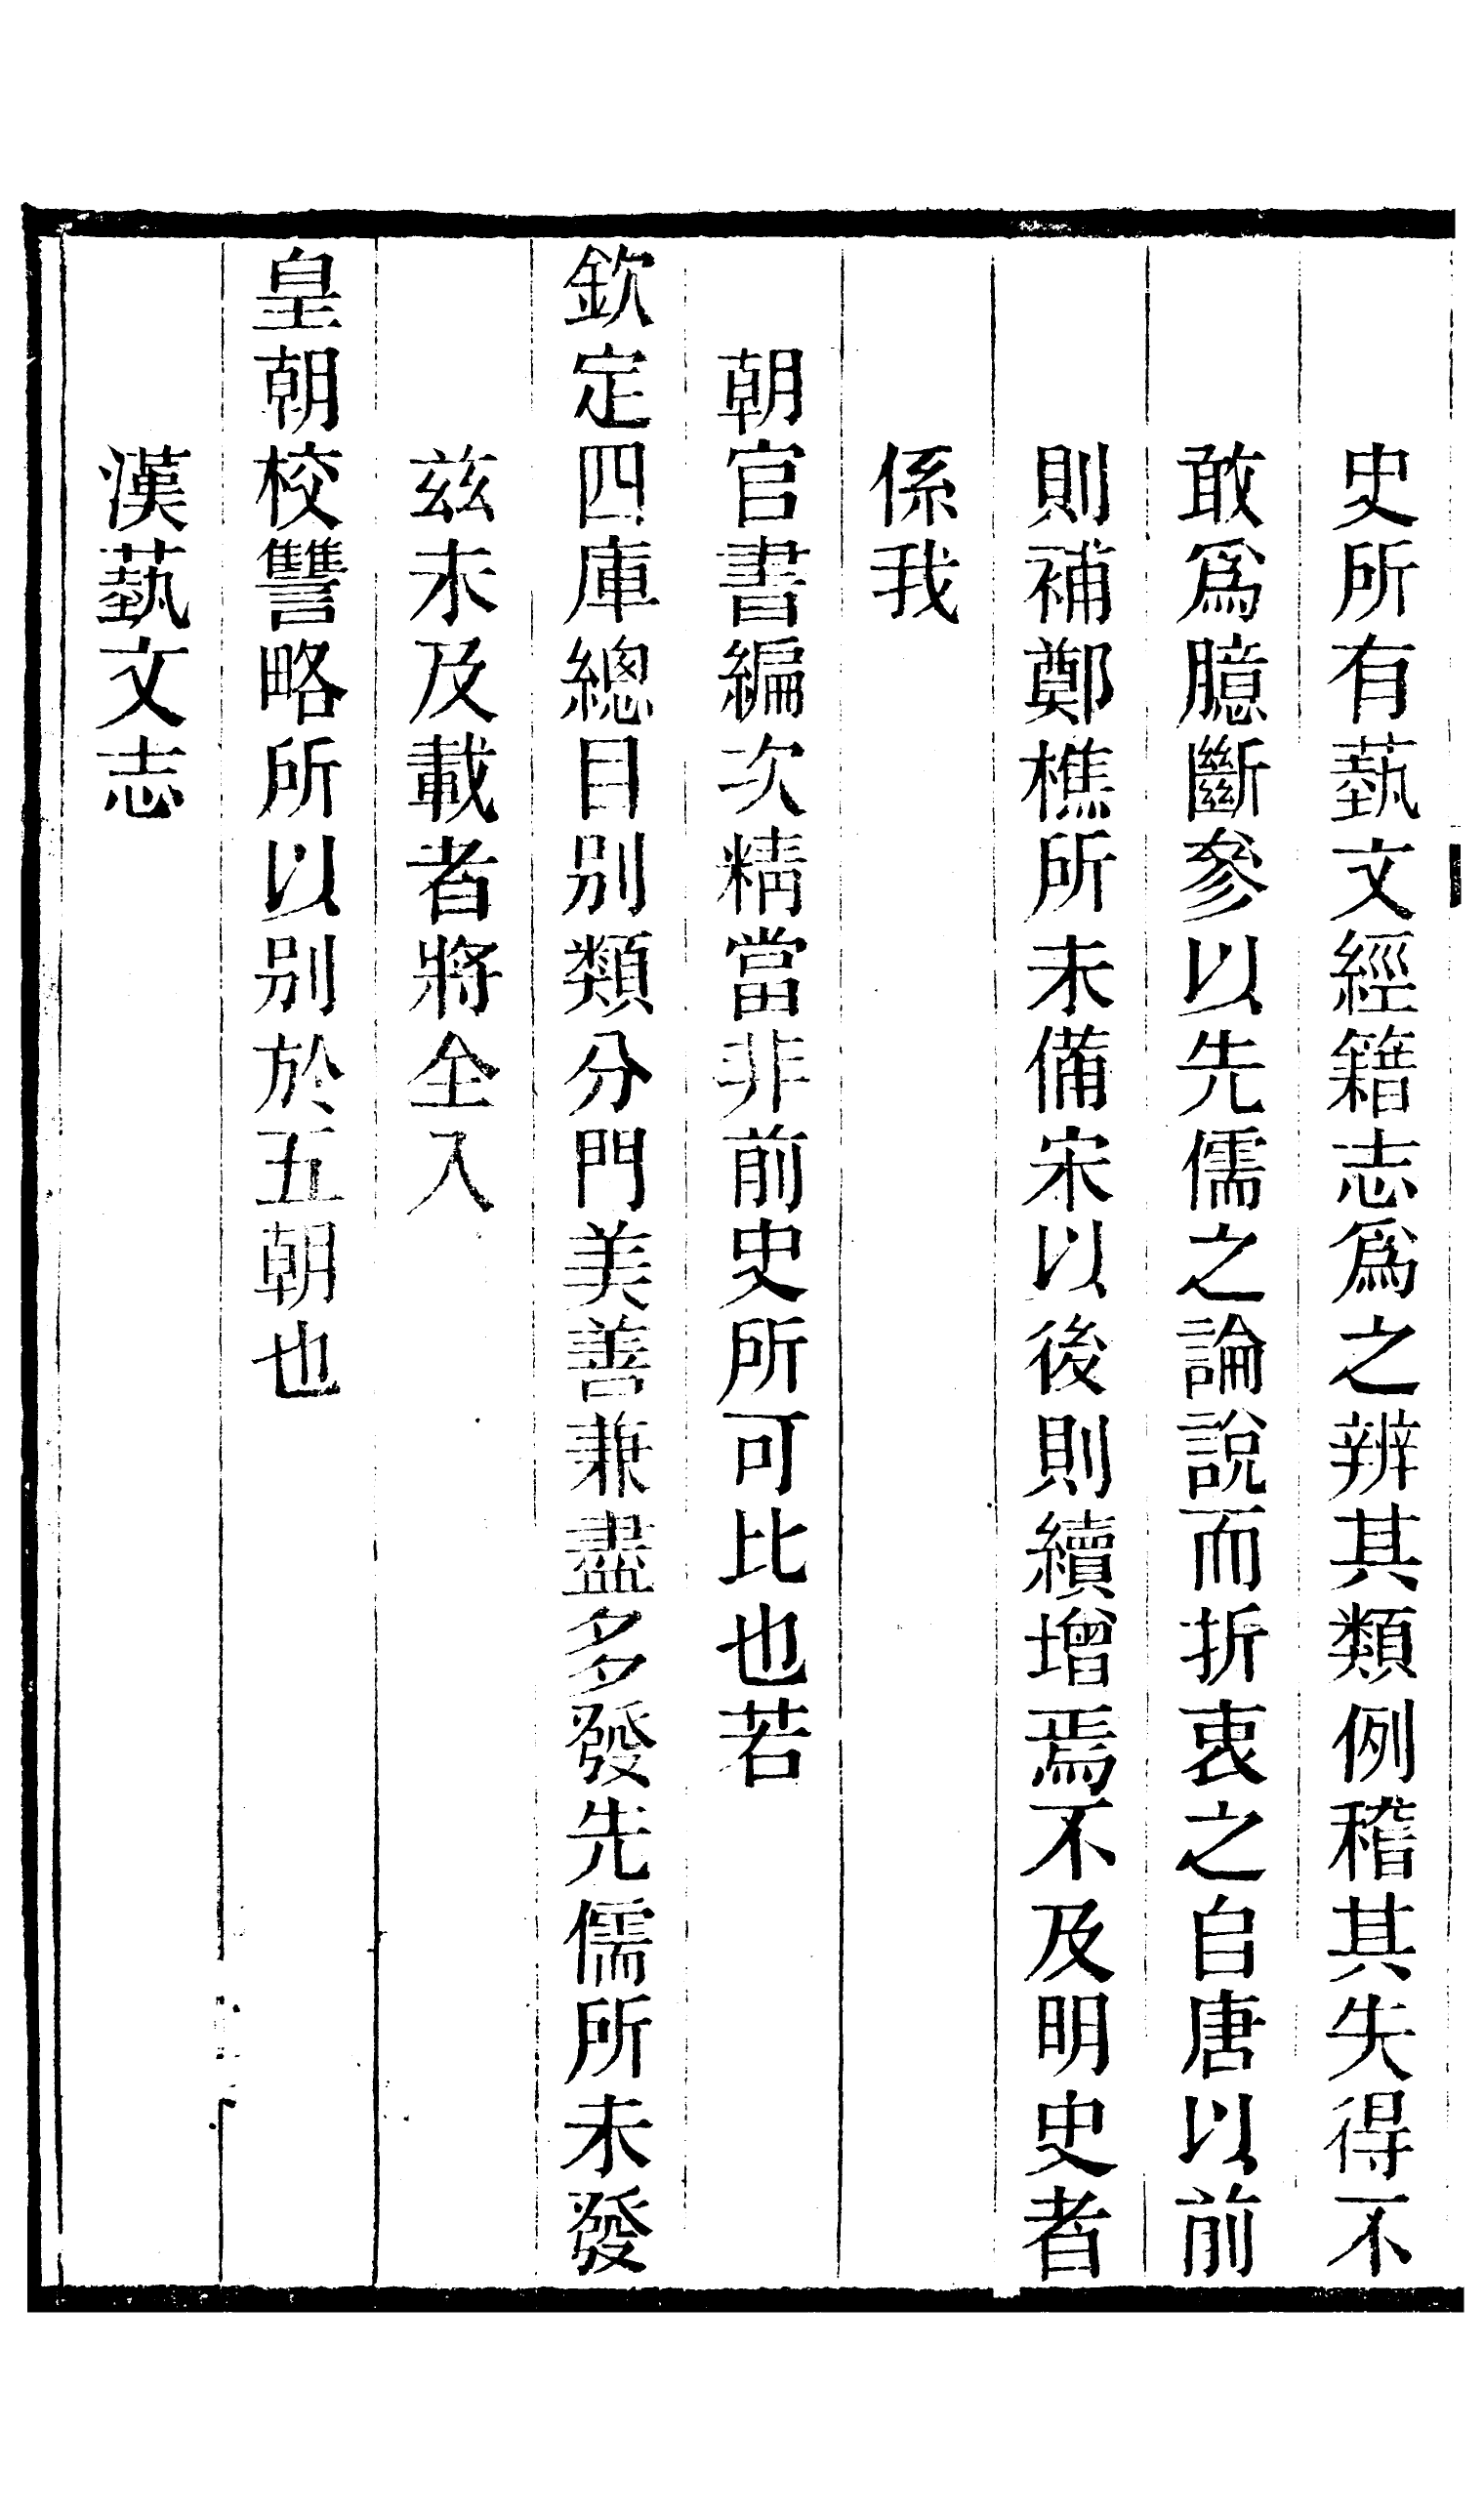 史所有蓺文經籍志爲之辨其類例稽其失得不
敢爲臆斷參以先儒之論說而折衷之自唐以前
則補鄭樵所未備宋以後則續增焉不及明史者
係我
朝官書編次精當非前史所可比也若
欽定四庫總目別類分門美善兼盡多發先儒所未發
兹未及載者將全入
皇朝校讐略所以別於五朝也
漢蓺文志